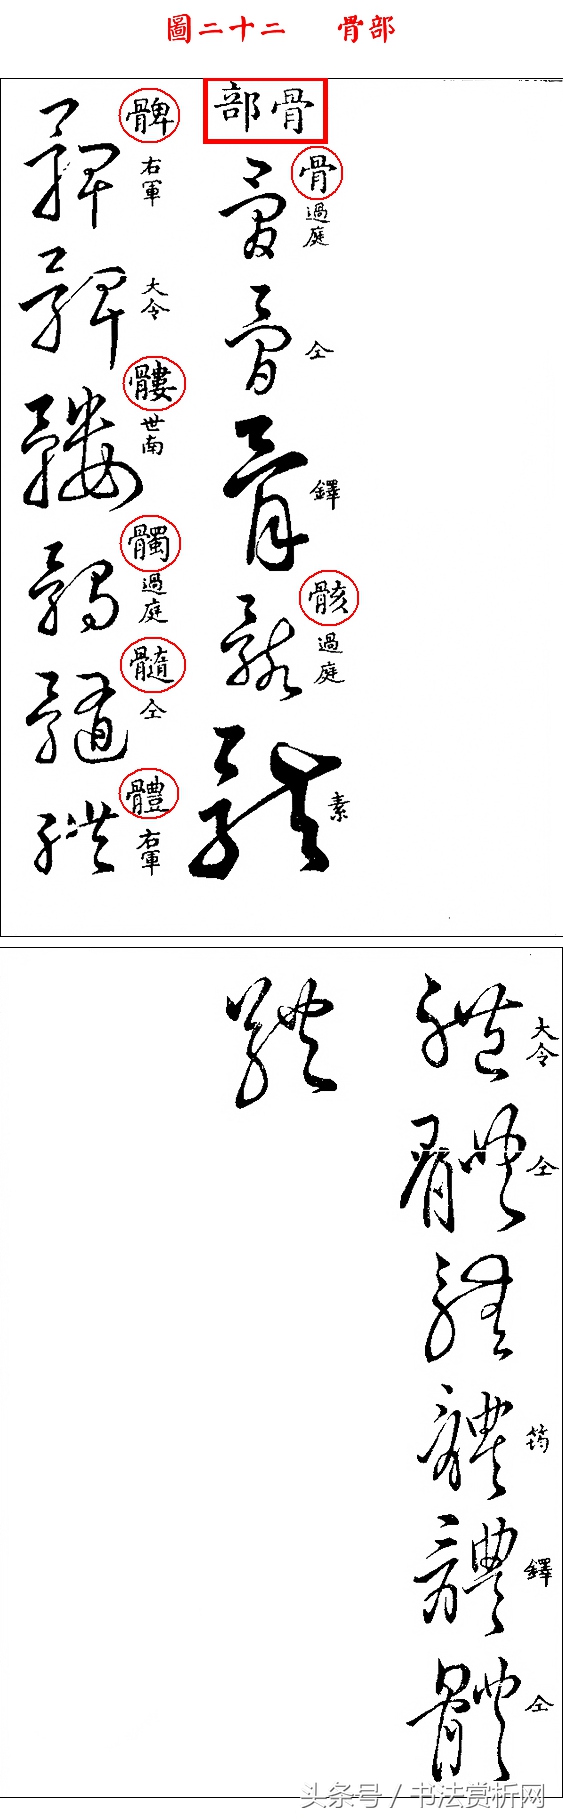 圖二十二 骨部
骨部
骨
過庭
仝
鐸
骸
過庭
素
髀
右軍
大令
髏
世南
髑
過庭
髓
仝
體
右軍
大令
仝
筠
鐸
仝
头条号 / 书法赏析网